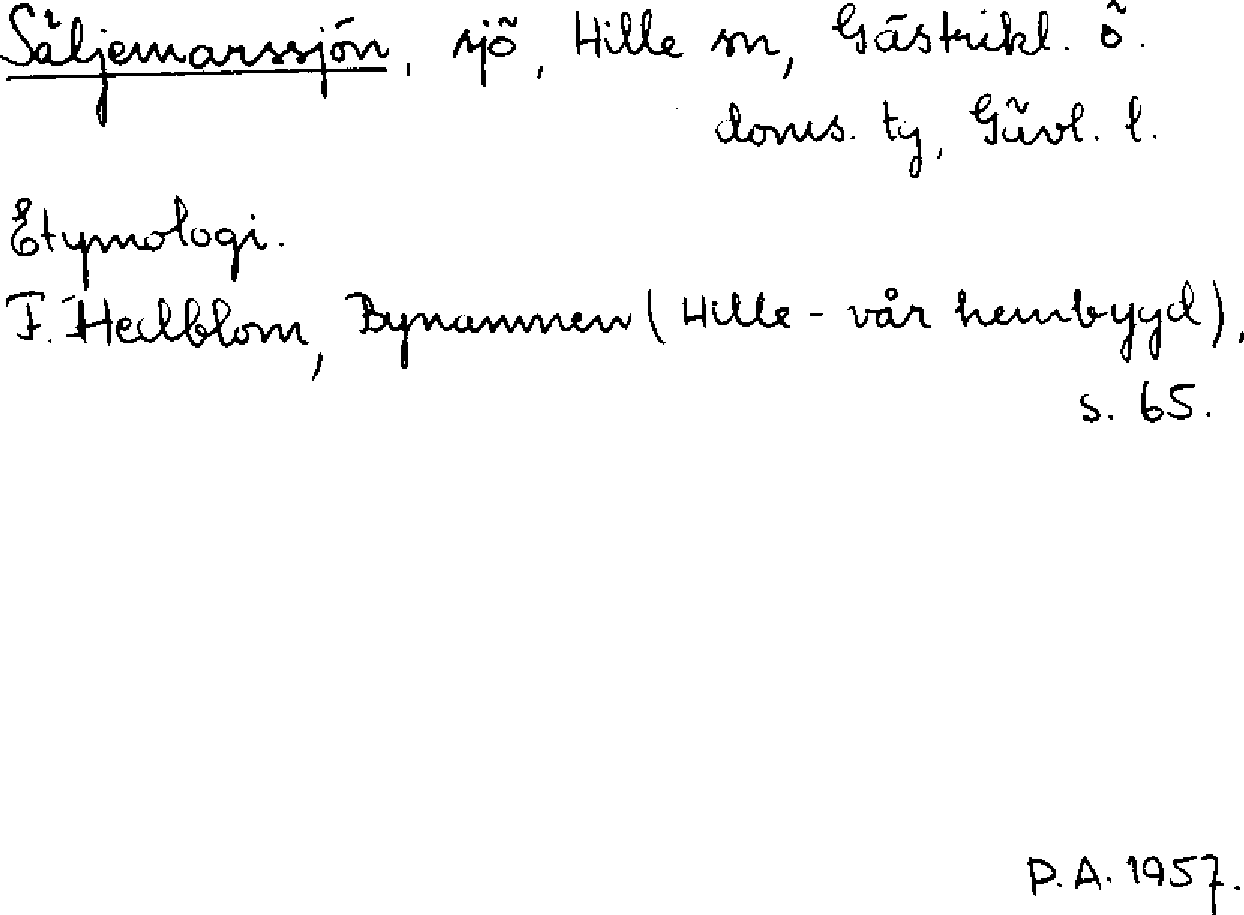 Säljemarssjön, sjö, Hille sn, Gästrikl. ö.
doms. tg, Gävl. l.
Etymologi.
F. Hedblom, Bynamnen (Hille - vår hembygd),
s. 65.
P.A. 1957.